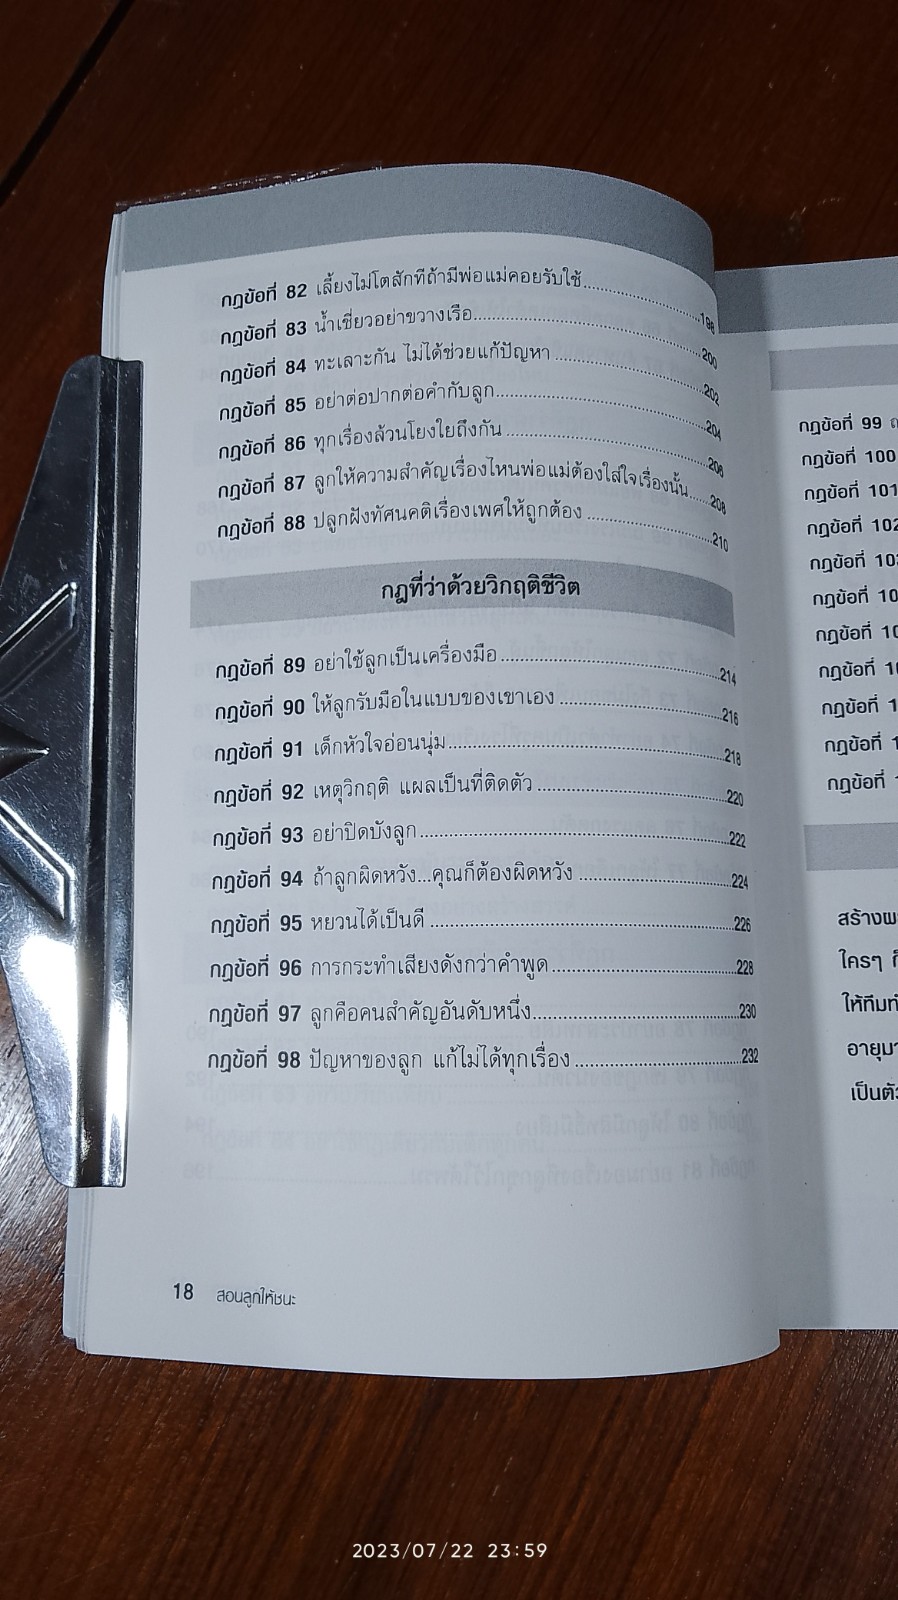 กฎข้อที่ 82 เลี้ยงไม่โตสักทีถ้ามีพ่อแม่คอยรับใช้..........198
กฎข้อที่ 83 น้ำเชี่ยวอย่าขวางเรือ..........200
กฎข้อที่ 84 ทะเลาะกัน ไม่ได้ช่วยแก้ปัญหา..........202
กฎข้อที่ 85 อย่าต่อปากต่อคำกับลูก..........204
กฎข้อที่ 86 ทุกเรื่องล้วนโยงใยถึงกัน..........206
กฎข้อที่ 87 ลูกให้ความสำคัญเรื่องไหนพ่อแม่ต้องใส่ใจเรื่องนั้น..........208
กฎข้อที่ 88 ปลูกฝังทัศนคติเรื่องเพศให้ถูกต้อง..........210
กฎที่ว่าด้วยวิกฤติชีวิต
กฎข้อที่ 89 อย่าใช้ลูกเป็นเครื่องมือ..........214
กฎข้อที่ 90 ให้ลูกรับมือในแบบของเขาเอง..........216
กฎข้อที่ 91 เด็กหัวใจอ่อนนุ่ม..........218
กฎข้อที่ 92 เหตุวิกฤติ แผลเป็นที่ติดตัว..........220
กฎข้อที่ 93 อย่าปิดบังลูก..........222
กฎข้อที่ 94 ถ้าลูกผิดหวัง...คุณก็ต้องผิดหวัง..........224
กฎข้อที่ 95 หยวนได้เป็นดี..........226
กฎข้อที่ 96 การกระทำเสียงดังกว่าคำพูด..........228
กฎข้อที่ 97 ลูกคือคนสำคัญอันดับหนึ่ง..........230
กฎข้อที่ 98 ปัญหาของลูก แก้ไม่ได้ทุกเรื่อง..........232
18 สอนลูกให้ชนะ
กฎข้อที่ 99
กฎข้อที่ 100
กฎข้อที่ 101
กฎข้อที่
กฎข้อที่
กฎข้อที่
กฎข้อที่
กฎข้อที่
กฎข้อที่
กฎข้อที่
กฎข้อที่
สร้าง
ใครๆ
ให้ทีม
เป็น
2023/07/22 23:59